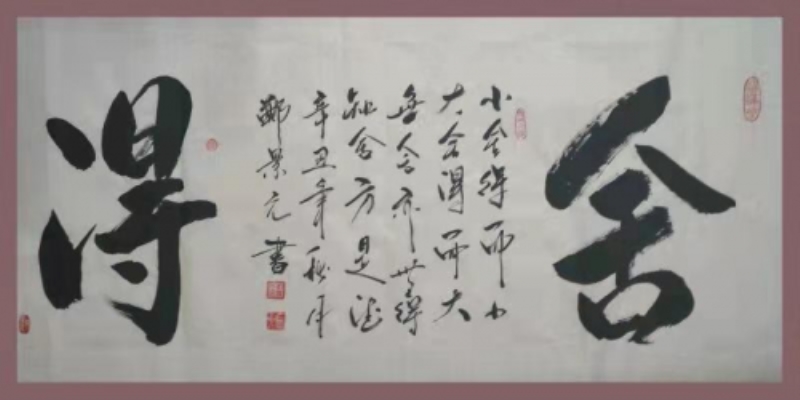 舍
小舍得而小
大舍得而大
無舍亦無得
能舍方是德
辛丑年秋月
景元書
得